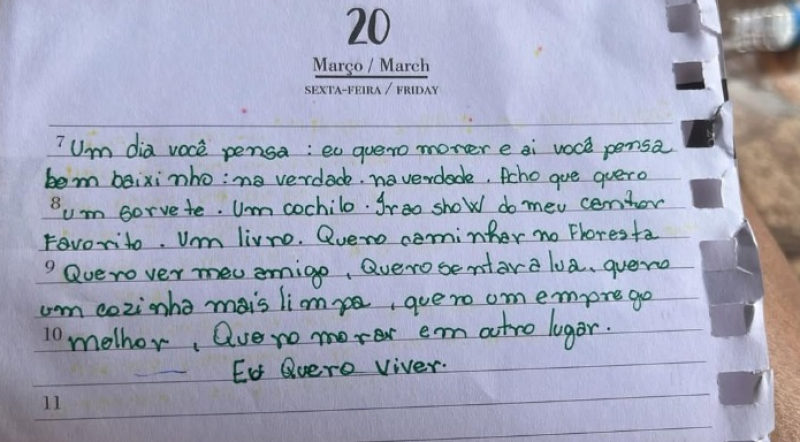 20
Março / March
SEXTA-FEIRA / FRIDAY
7 Um dia você pensa : eu quero morrer e ai você pensa
bem baixinho : na verdade. na verdade. Acho que quero
8 um sorvete. Um cochilo. Ir ao show do meu cantor
Favorito. Um livro. Quero caminhar na Floresta
9 Quero ver meu amigo, Quero sentar a lua, quero
um cozinha mais limpa, quero um emprego
10 melhor, Quero morar em outro lugar.
Eu Quero Viver.
11